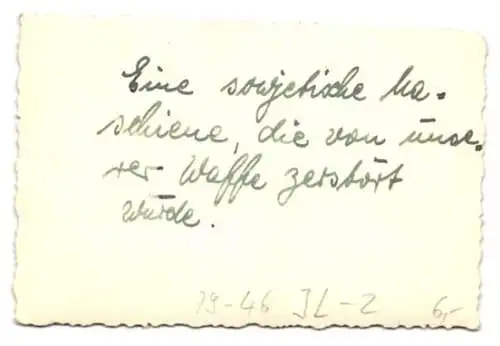 Eine sowjetische Ma=
schiene, die von unse=
rer Waffe zerstört
wurde.
19-46 JL-2 6,-